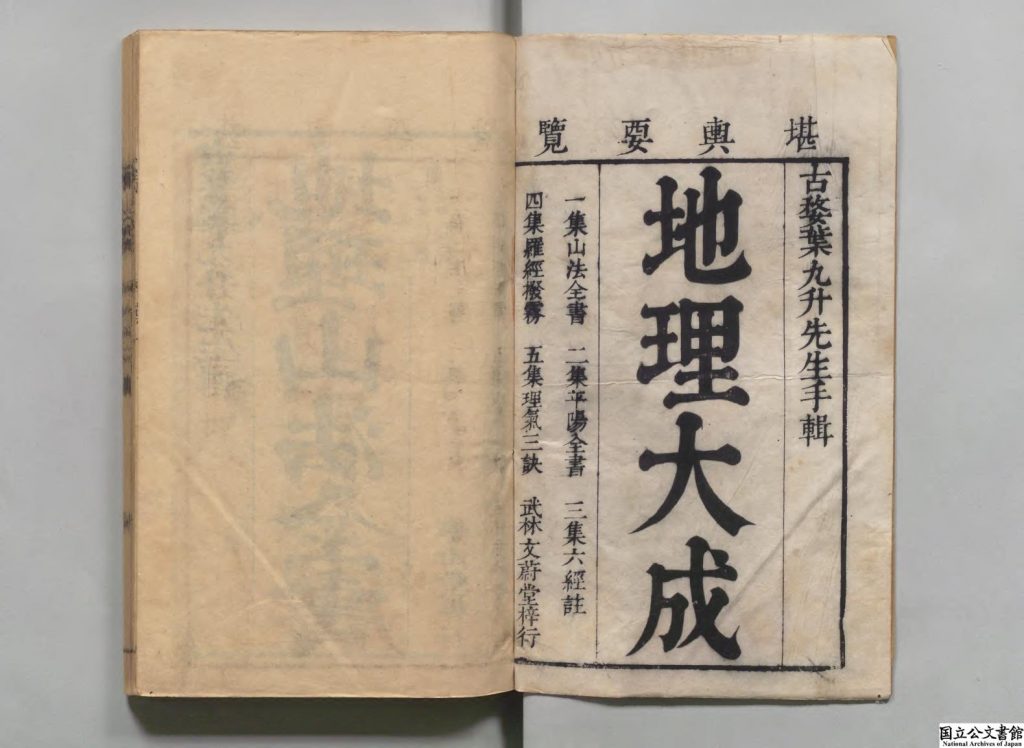 堪輿要覽
古婺葉九升先生手輯
地理大成
一集山法全書 二集平陽全書 三集六經註
四集羅經撥霧 五集理氣三訣 武林文蔚堂梓行
国立公文書館
National Archives of Japan